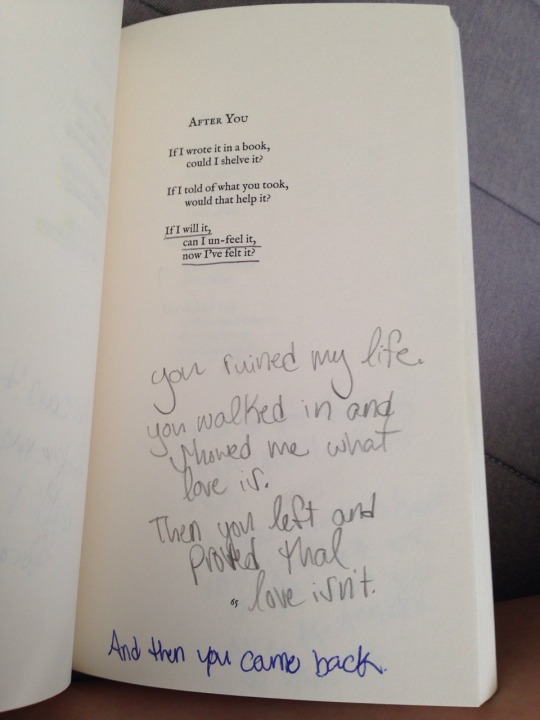 AFTER YOU
If I wrote it in a book,
could I shelve it?
If I told of what you took,
would that help it?
If I will it,
can I un-feel it,
now I've felt it?
you ruined my life.
you walked in and
showed me what
love is.
Then you left and
proved that
love isn't.
65
And then you came back.